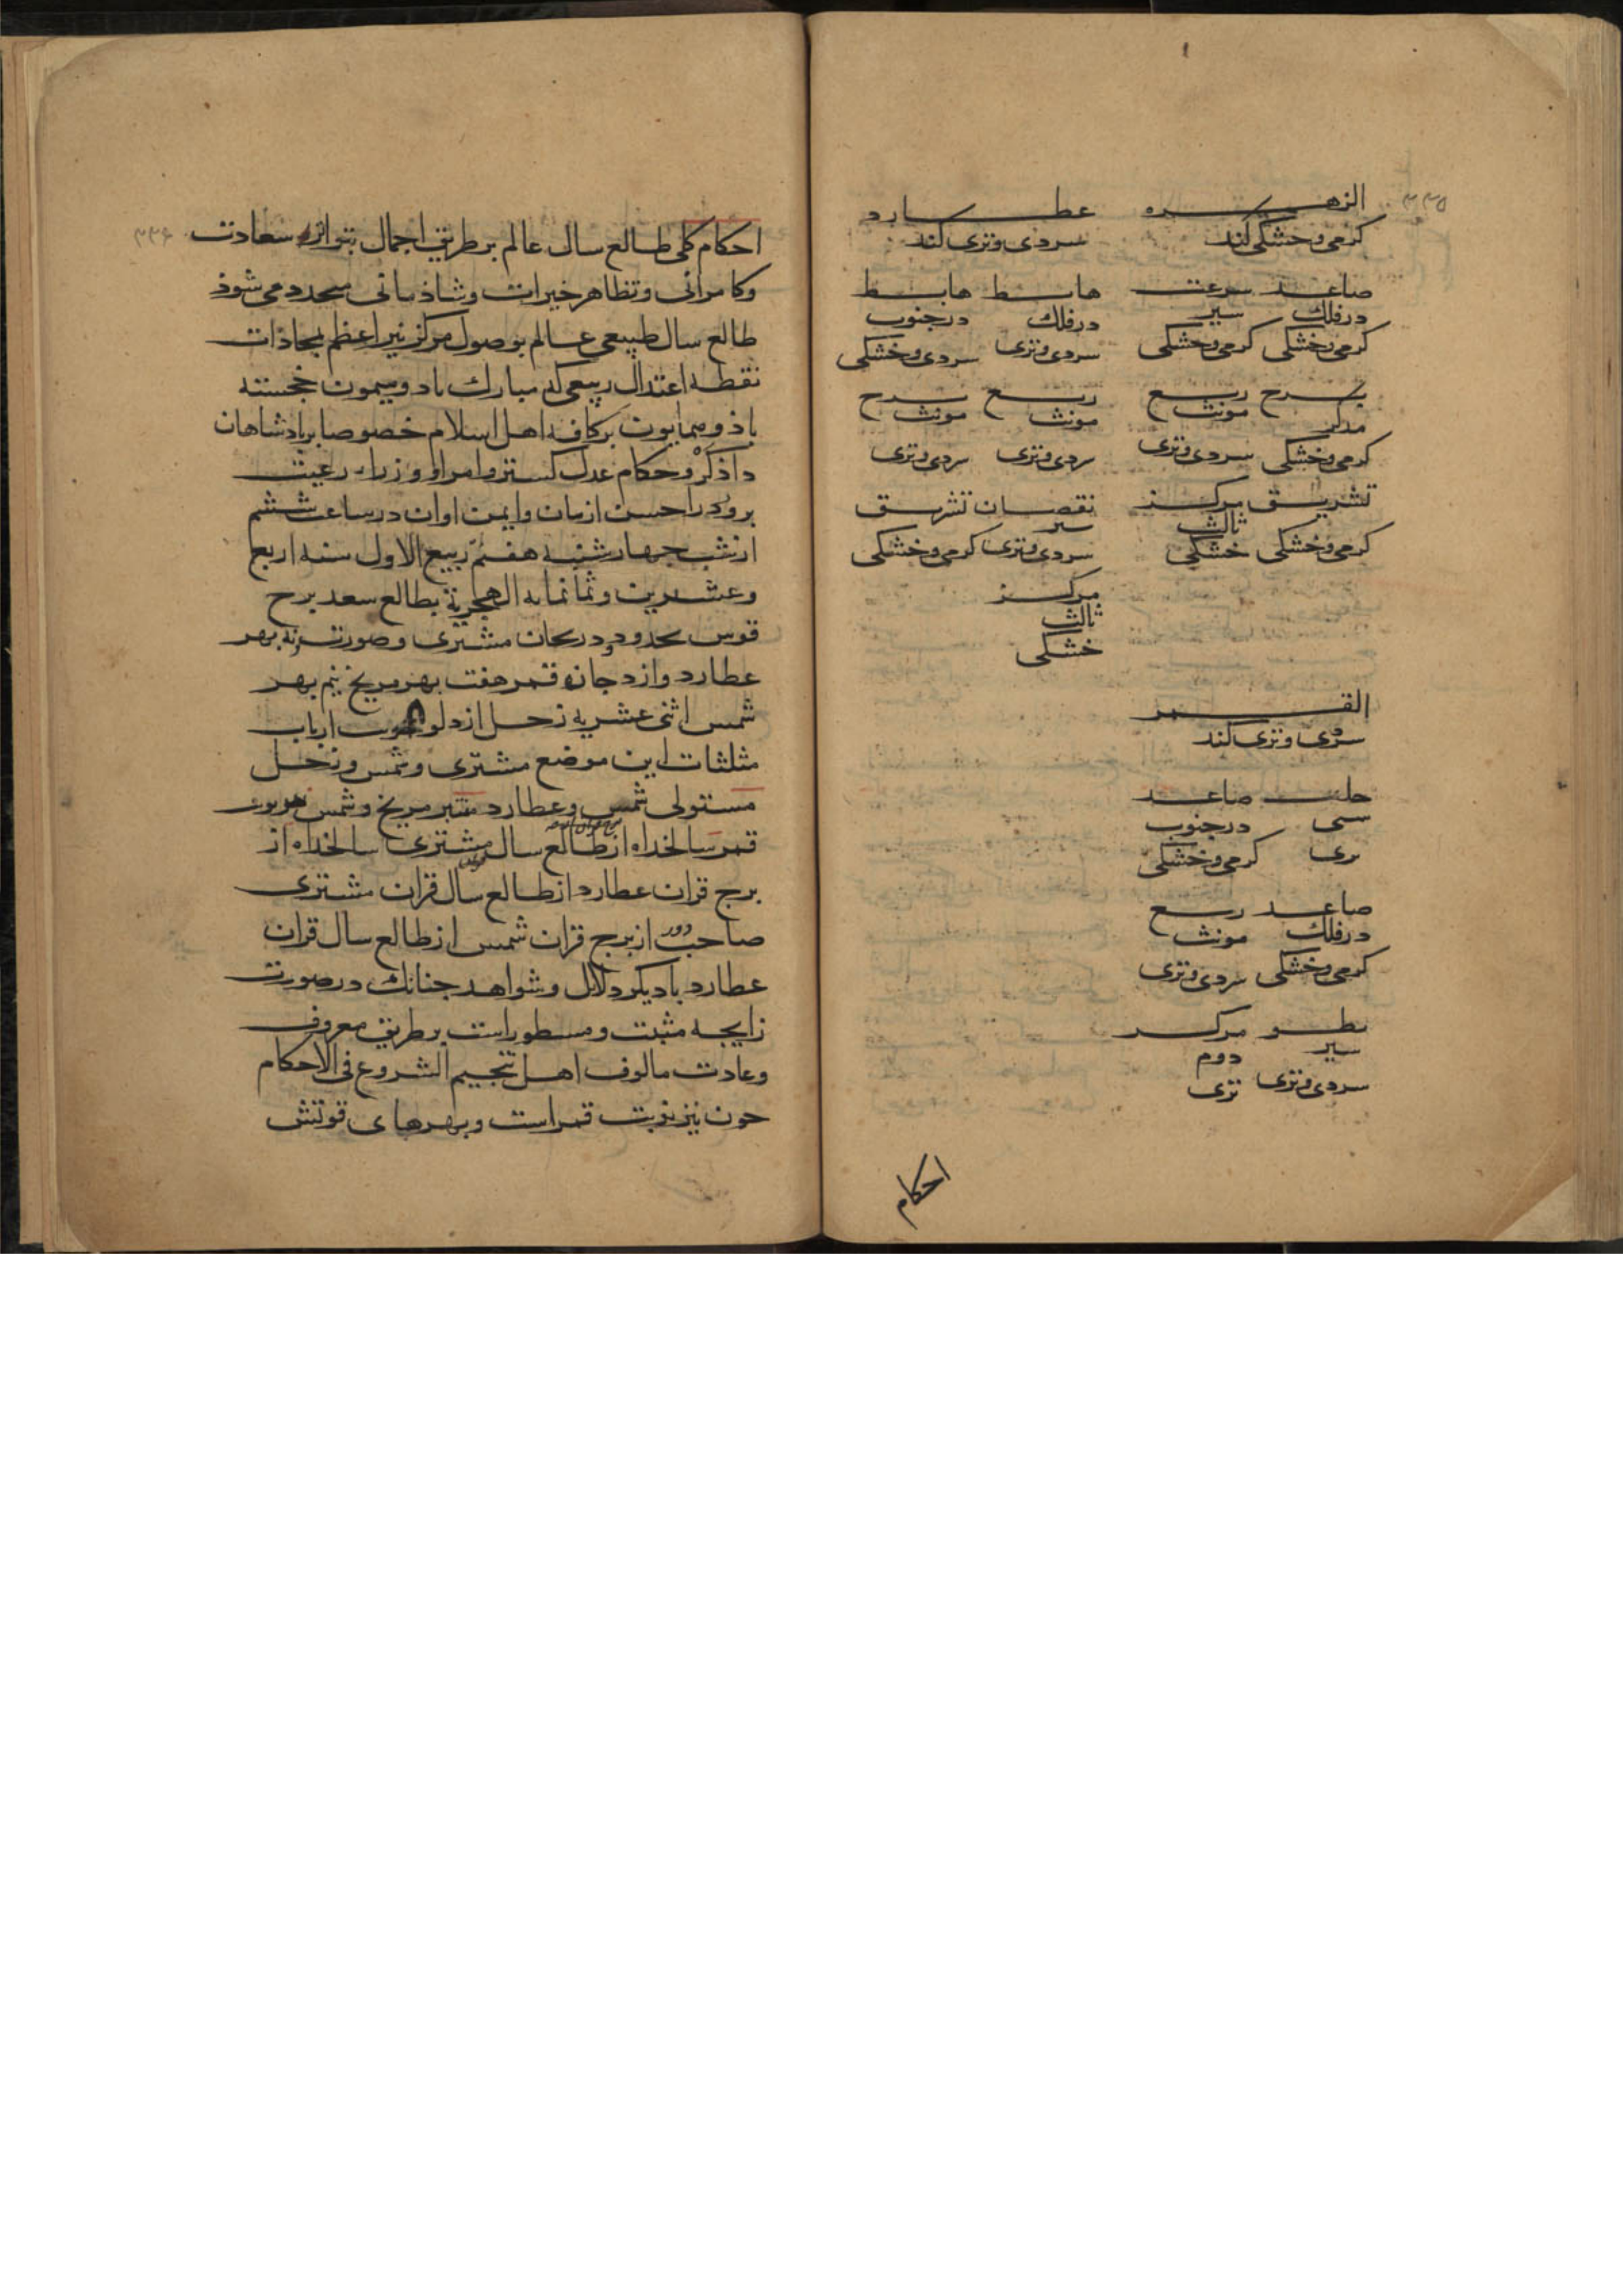 ۳۳۵
الزهره عطارد
کرمی وخشکی کند سردی وتری کند
صاعد سرعت هابط هابط
درفلک سیر درفلک درجنوب
کرمی وخشکی کرمی وخشکی سردی وتری سردی وخشکی
برج ربع ربع برج
مذکر مونث مونث مونث
کرمی وخشکی سردی وتری سردی وتری سردی وتری
تشریق مرکز نقصان تشریق
ثالث سیر
کرمی وخشکی خشکی سردی وتری کرمی وخشکی
مرکز
ثالث
خشکی
القمر
سردی وتری کند
صاعد
درجنوب
تری کرمی وخشکی
صاعد ربع
درفلک مونث
کرمی وخشکی سردی وتری
بطو مرکز
سیر دوم
سردی وتری تری
احکام
۳۳۶
احکام کلی طالع سال عالم برطریق اجمال بتواتر سعادت
وکامرانی وتظاهر خیرات وشاذمانی محدد می شوذ
طالع سال طبیعی عالم بوصول مرکز نیر اعظم بمحاذات
نقطه اعتدال ربیعی که مبارک باد ومیمون خجسته
باذ وهمایون برکافه اهل اسلام خصوصا برپادشاهان
داذکر وحکام عدل کستر وامرا و وزراء رعیت
برور در احسن ازمان وایمن اوان درساعت ششم
ازشب جهارشنبه هفتم ربیع الاول سنه اربع
وعشرین وثمانمایه الهجریة بطالع سعد برج
قوس بحدود و دریجان مشتری وصورت ونه بهر
عطارد وازدجان قمر هفت بهر مریخ نیم بهر
شمس اثنی عشریه زحل از دلو ارباب
مثلثات این موضع مشتری وشمس وزحل
مستولی شمس وعطارد مبتز مریخ وشمس
قمر سالخداه ازطالع سال مشتری سالخداه از
برج قران عطارد ازطالع سال قران مشتری
صاحب دور ازبرج قران شمس ازطالع سال قران
عطارد بادیکر دلایل وشواهد جنانک درصورت
زایجه مثبت ومسطور است برطریق معروف
وعادت مالوف اهل تنجیم الشروع فی الاحکام
جون نیز نوبت قمر است وبهرهای قوتش